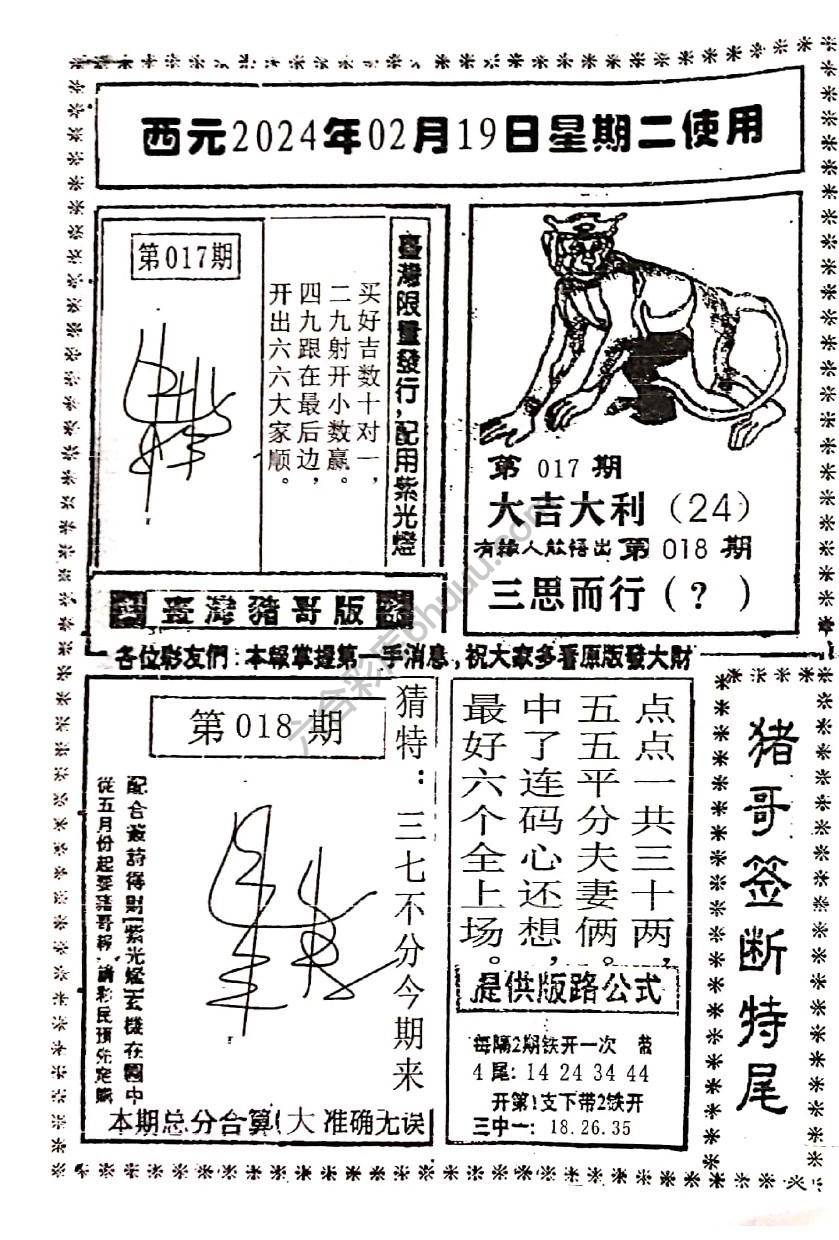 西元2024年02月19日星期二使用
第017期
买好吉数十对一，
二九射开小数赢。
四九跟在最后边，
开出六六大家顺。
臺灣限量發行，配用紫光燈
臺灣豬哥版
第 017 期
大吉大利（24）
有緣人能悟出 第 018 期
三思而行（？）
各位彩友們：本報掌握第一手消息，祝大家多看原版發大財
第 018 期
猜特：三七不分今期来
配合歲詩得財[紫光燈]玄機在圖中
從五月份起要豬哥報，請彩民預先定購
本期总分合算(大 准确无误
点点一共三十两，
五五平分夫妻俩。
中了连码心还想，
最好六个全上场。
提供版路公式
每隔2期铁开一次 带
4尾: 14 24 34 44
开第1支下带2铁开
三中一: 18.26.35
猪哥签断特尾